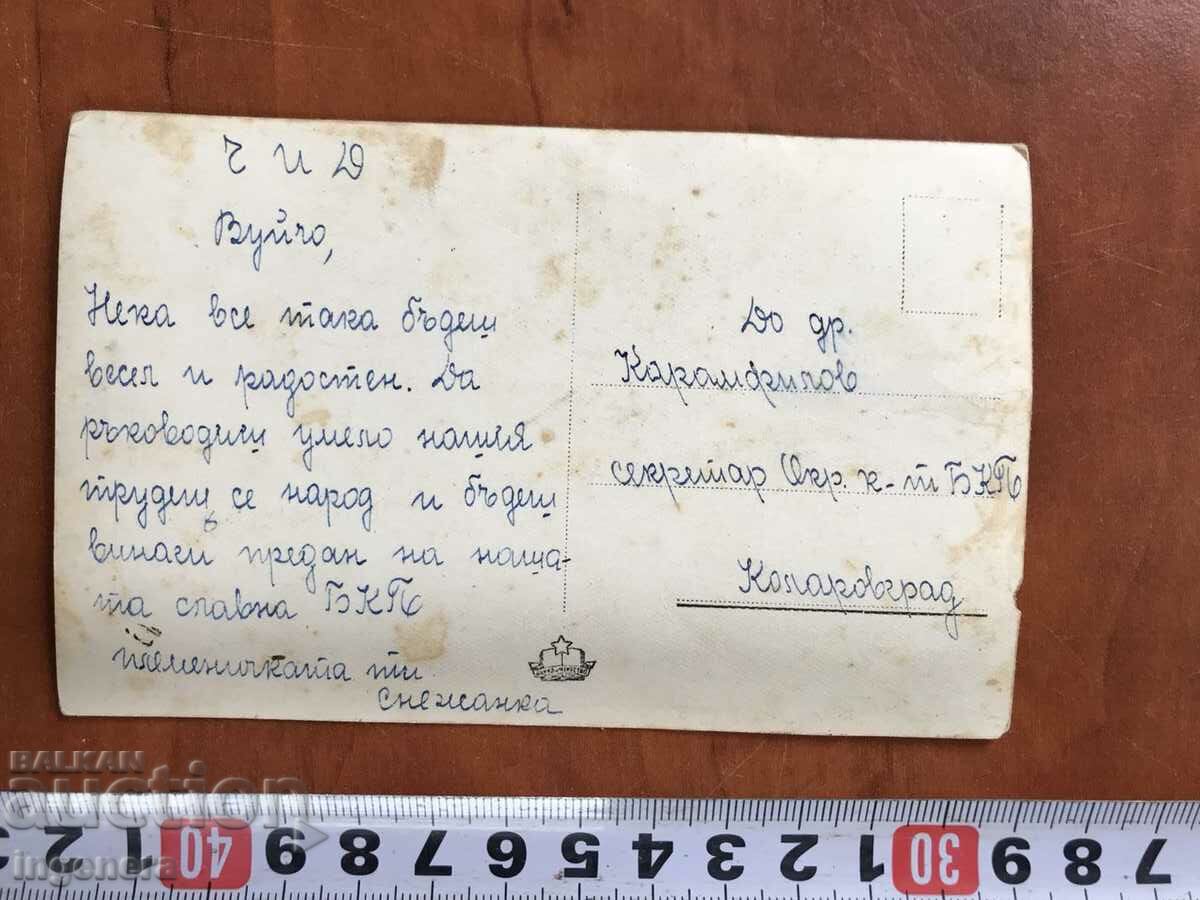 Ч И Д
Вуйчо,
Нека все така бъдеш
весел и радостен. Да
ръководиш умело нашия
трудещ се народ и бъдеш
винаги предан на наша-
та славна БКП
племеничката ти
Снежанка
До др.
Карамфилов
секретар Окр. к-т БКП
Коларовград
BALKAN
auction
ingenera
2 1 40 9 8 7 6 5 4 3 2 1 30 9 8 7